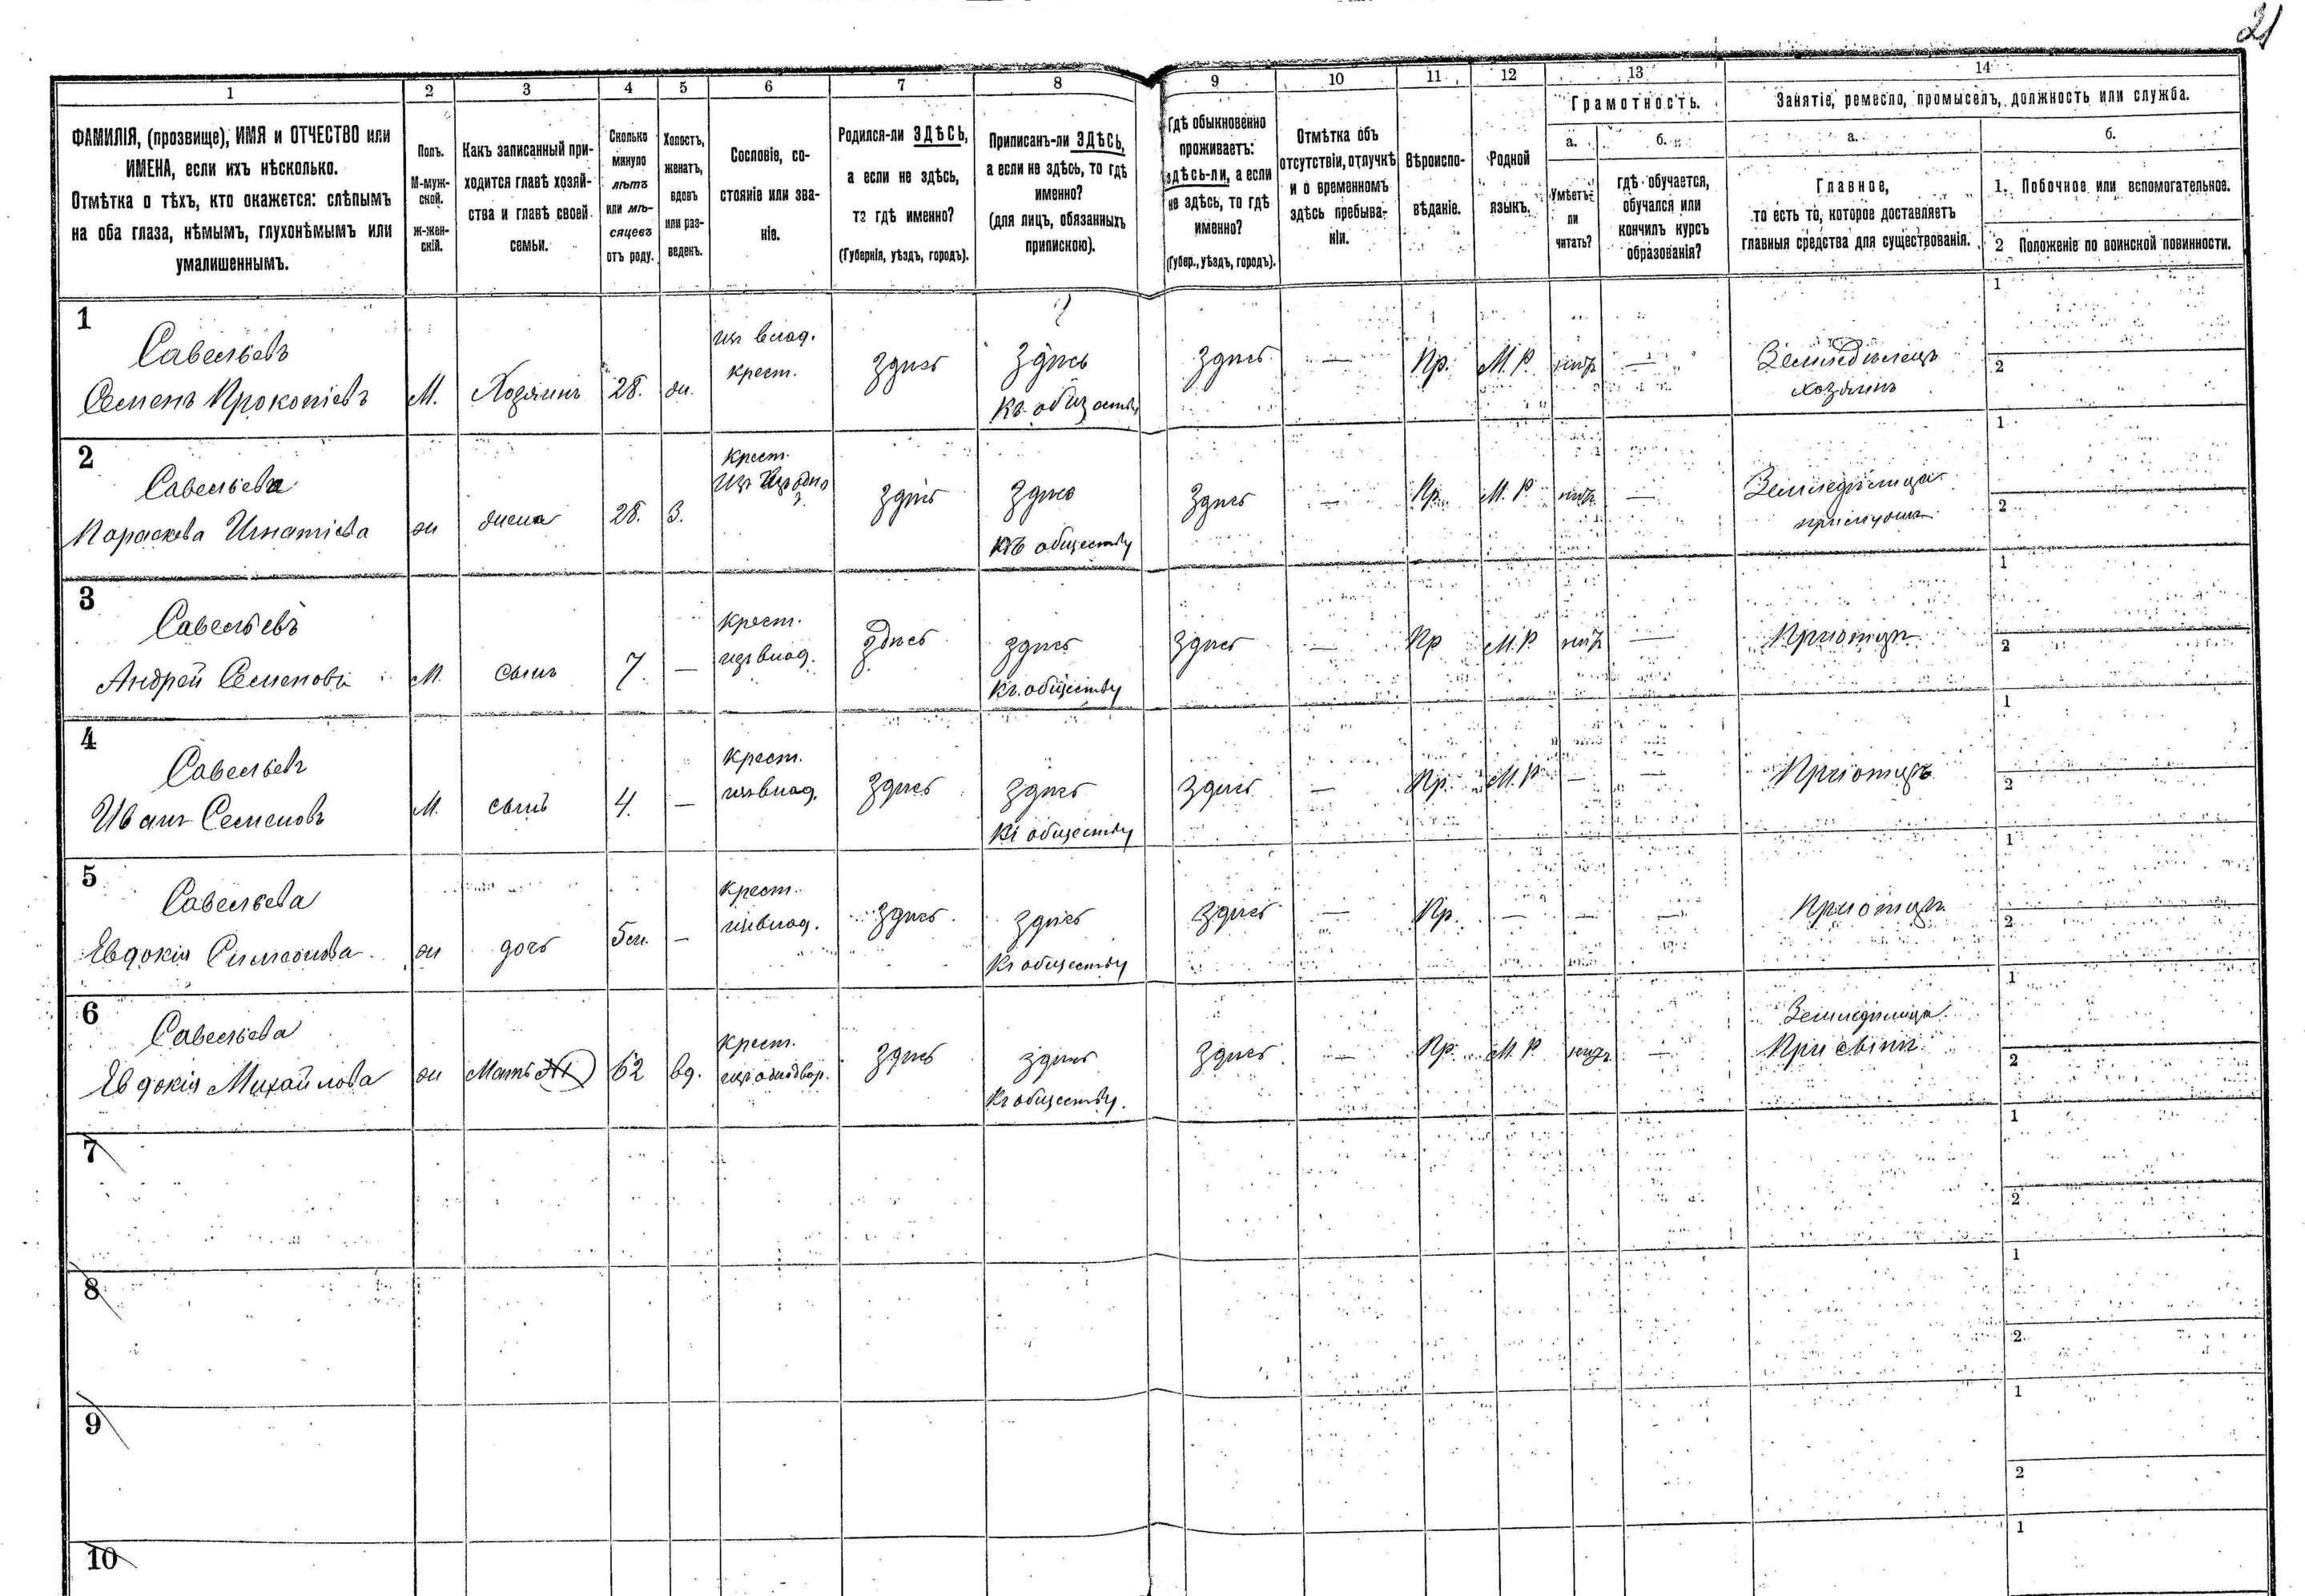 21
1 2 3 4 5 6 7 8 9 10 11 12 13 14
ФАМИЛІЯ, (прозвище), ИМЯ и ОТЧЕСТВО или
ИМЕНА, если ихъ нѣсколько.
Отмѣтка о тѣхъ, кто окажется: слѣпымъ
на оба глаза, нѣмымъ, глухонѣмымъ или
умалишеннымъ.
Полъ.
М-муж-
ской.
Ж-жен-
скій.
Какъ записанный при-
ходится главѣ хозяй-
ства и главѣ своей
семьи.
Сколько
минуло
лѣтъ
или мѣ-
сяцевъ
отъ роду.
Холостъ,
женатъ,
вдовъ
или раз-
веденъ.
Сословіе, со-
стояніе или зва-
ніе.
Родился-ли ЗДѢСЬ,
а если не здѣсь,
то гдѣ именно?
(Губернія, уѣздъ, городъ).
Приписанъ-ли ЗДѢСЬ,
а если не здѣсь, то гдѣ
именно?
(для лицъ, обязанныхъ
припискою).
Гдѣ обыкновенно
проживаетъ:
здѣсь-ли, а если
не здѣсь, то гдѣ
именно?
(Губер., уѣздъ, городъ).
Отмѣтка объ
отсутствіи, отлучкѣ
и о временномъ
здѣсь пребыва-
ніи.
Вѣроиспо-
вѣданіе.
Родной
языкъ.
Грамотность.
а.
Умѣетъ-
ли
читать?
б.
гдѣ обучается,
обучался или
кончилъ курсъ
образованія?
Занятіе, ремесло, промыселъ, должность или служба.
а.
Главное,
то есть то, которое доставляетъ
главныя средства для существованія.
б.
1. Побочное или вспомогательное.
2 Положеніе по воинской повинности.
1
Савельевъ
Семенъ Прокопіевъ
М.
Хозяинъ
28.
ж.
изъ влад.
крест.
Здѣсь
Здѣсь
Къ обществу
Здѣсь
—
Пр.
М. Р.
нѣтъ
—
Земледѣлецъ
хозяинъ
1
2
2
Савельева
Параскева Игнатіева
ж
жена
28.
З.
крест.
Здѣсь
Здѣсь
Къ обществу
Здѣсь
—
Пр.
М. Р.
нѣтъ
—
Земледѣлица
1
2
3
Савельевъ
Андрей Семеновъ
М.
сынъ
7
—
крест.
изъ влад.
Здѣсь
здѣсь
Къ обществу
Здѣсь
—
Пр
М. Р
нѣтъ
—
При отцѣ
1
2
4
Савельевъ
Иванъ Семеновъ
М.
сынъ
4.
—
крест.
изъ влад.
Здѣсь
Здѣсь
Къ обществу
Здѣсь
—
Пр.
М. Р
—
—
При отцѣ
1
2
5
Савельева
Евдокія Симеонова
ж
дочь
5 м.
—
крест.
изъ влад.
Здѣсь
здѣсь
Къ обществу
Здѣсь
—
Пр.
—
—
—
При отцѣ
1
2
6
Савельева
Евдокія Михайлова
ж
Мать №1
62
вд.
крест.
изъ однодвор.
Здѣсь
здѣсь
Къ обществу.
Здѣсь
—
Пр.
М. Р
нѣтъ
—
Земледѣлица
При сынѣ
1
2
7
1
2
8
1
2
9
1
2
10
1